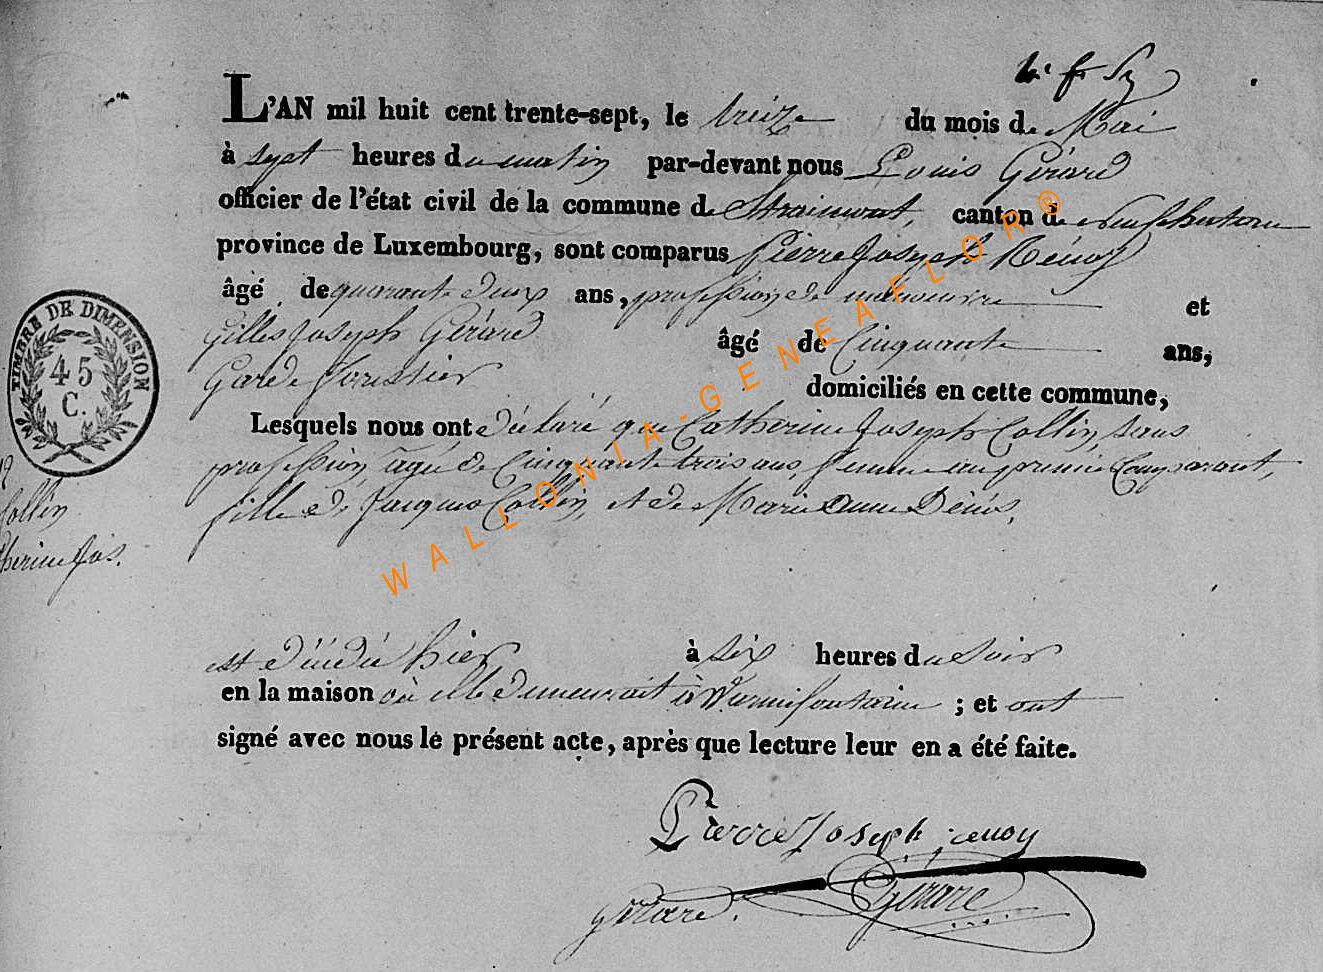 L'AN mil huit cent trente-sept, le treize du mois de Mai
à sept heures du matin par-devant nous Louis Gérard
officier de l'état civil de la commune de Straimont, canton de neufchateau
province de Luxembourg, sont comparus Pierre Joseph
âgé de quarante deux ans, profession de et
Gilles Joseph Gérard âgé de Cinquante ans,
Garde forestier domiciliés en cette commune,
Lesquels nous ont déclaré que Catherine Joseph Collin, sans
profession, agée de Cinquante trois ans, femme au premier Comparant,
fille de Jacques Collin, et de Marie anne Dénis,
est décédée hier à six heures du soir
en la maison où elle demeurait à ; et ont
signé avec nous le présent acte, après que lecture leur en a été faite.
Pierre Joseph
Gérard
Gérard.
TIMBRE DE DIMENSION
45
C.
Collin
Jos.
WALLONIA-GENEAFLOR®